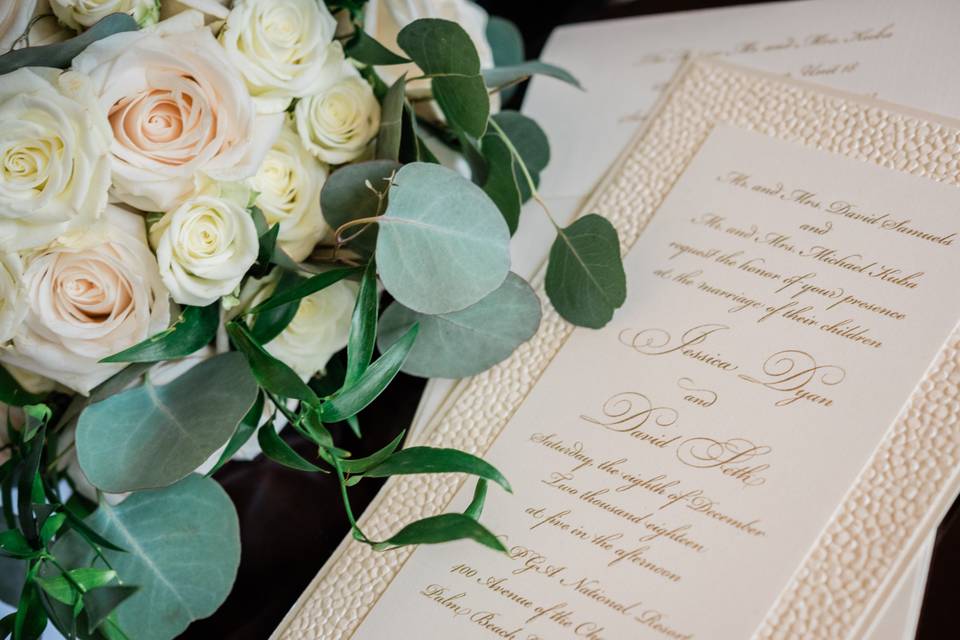 Mr. and Mrs. Kuba
Unit 18
Mr. and Mrs. David Samuels
and
Mr. and Mrs. Michael Kuba
request the honor of your presence
at the marriage of their children
Jessica Dyan
and
David Seth
Saturday, the eighth of December
Two thousand eighteen
at five in the afternoon
PGA National Resort
400 Avenue of the
Palm Beach